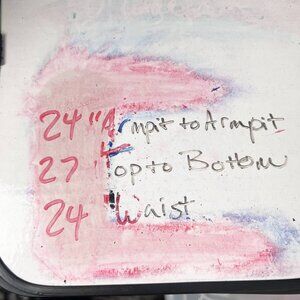 24 "Armpit to Armpit
27 "Top to Bottom
24 "Waist